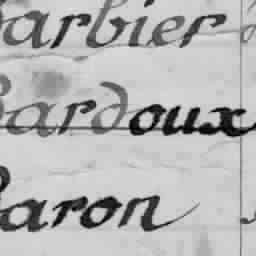 Barbier
Bardoux
Baron